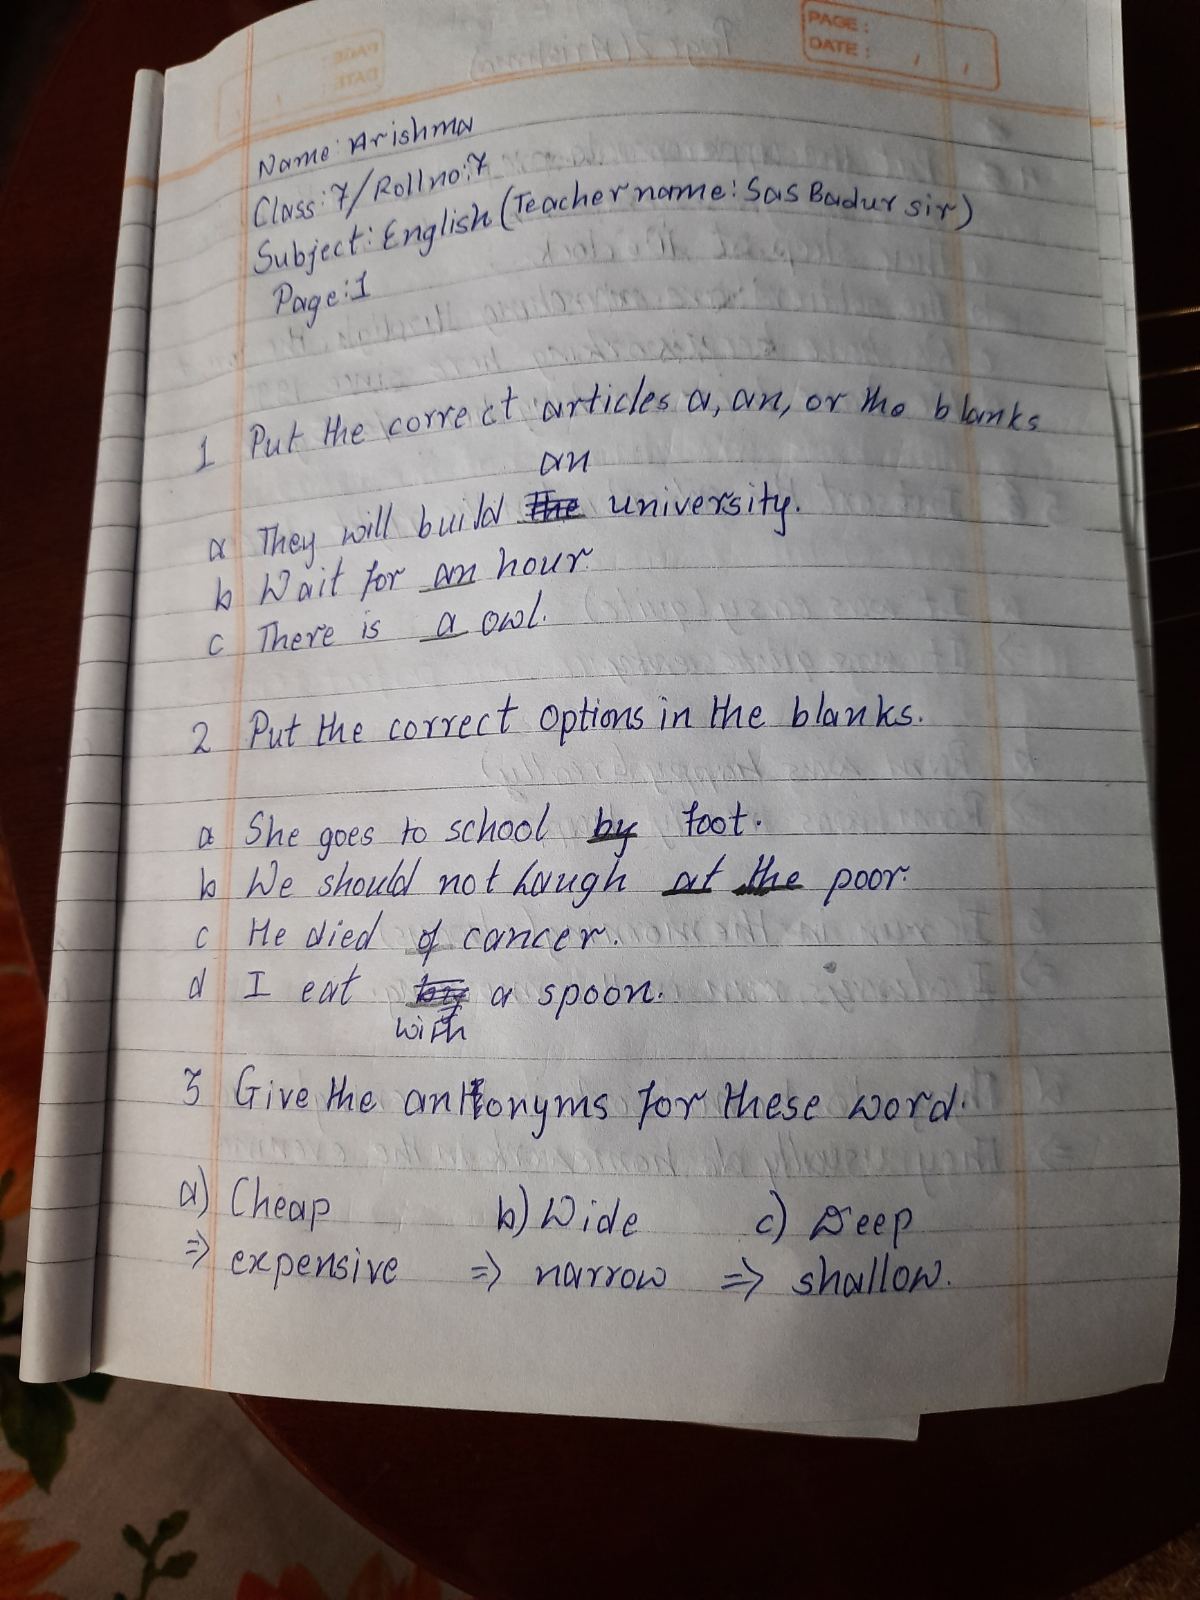 PAGE:
DATE: / /
Name: Arishma
Class: 7/Roll no: 7
Subject: English (Teacher name: Sas Badur sir)
Page: 1
1 Put the correct articles a, an, or the blanks
an
a They will build the university.
b Wait for an hour.
c There is a owl.
2 Put the correct options in the blanks.
a She goes to school by foot.
b We should not laugh at the poor.
c He died of cancer.
d I eat by a spoon.
with
3 Give the antonyms for these word.
a) Cheap b) Wide c) Deep
=> expensive => narrow => shallow.